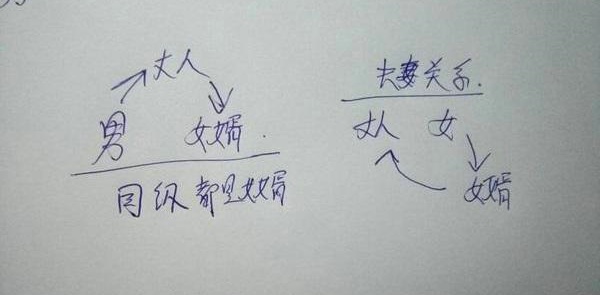 丈人
男 女婿.
同级都是女婿
夫妻关系.
丈人 女
女婿